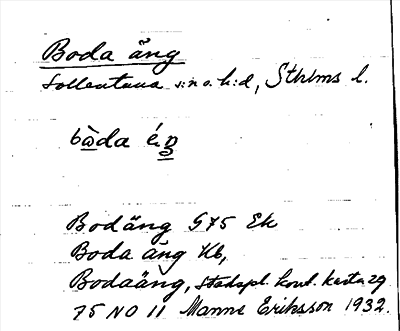 Boda äng
Sollentuna s:n o. h:d, Sthlms l.
bɷ̀da éŋ
Bodäng G75 Ek
Boda äng Kb,
Bodaäng, Stadspl. kont. karta 29
75 NO 11 Manne Eriksson 1932.